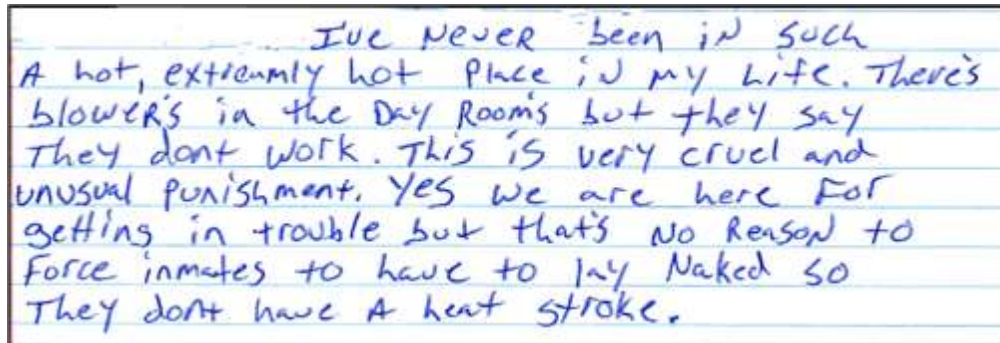 I've Never been in such
A hot, extreamly hot Place in my Life. There's
blower's in the Day Room's but they say
They dont work. This is very cruel and
unusual Punishment. Yes we are here For
getting in trouble but that's No Reason to
Force inmates to have to lay Naked so
They dont have A heat stroke.